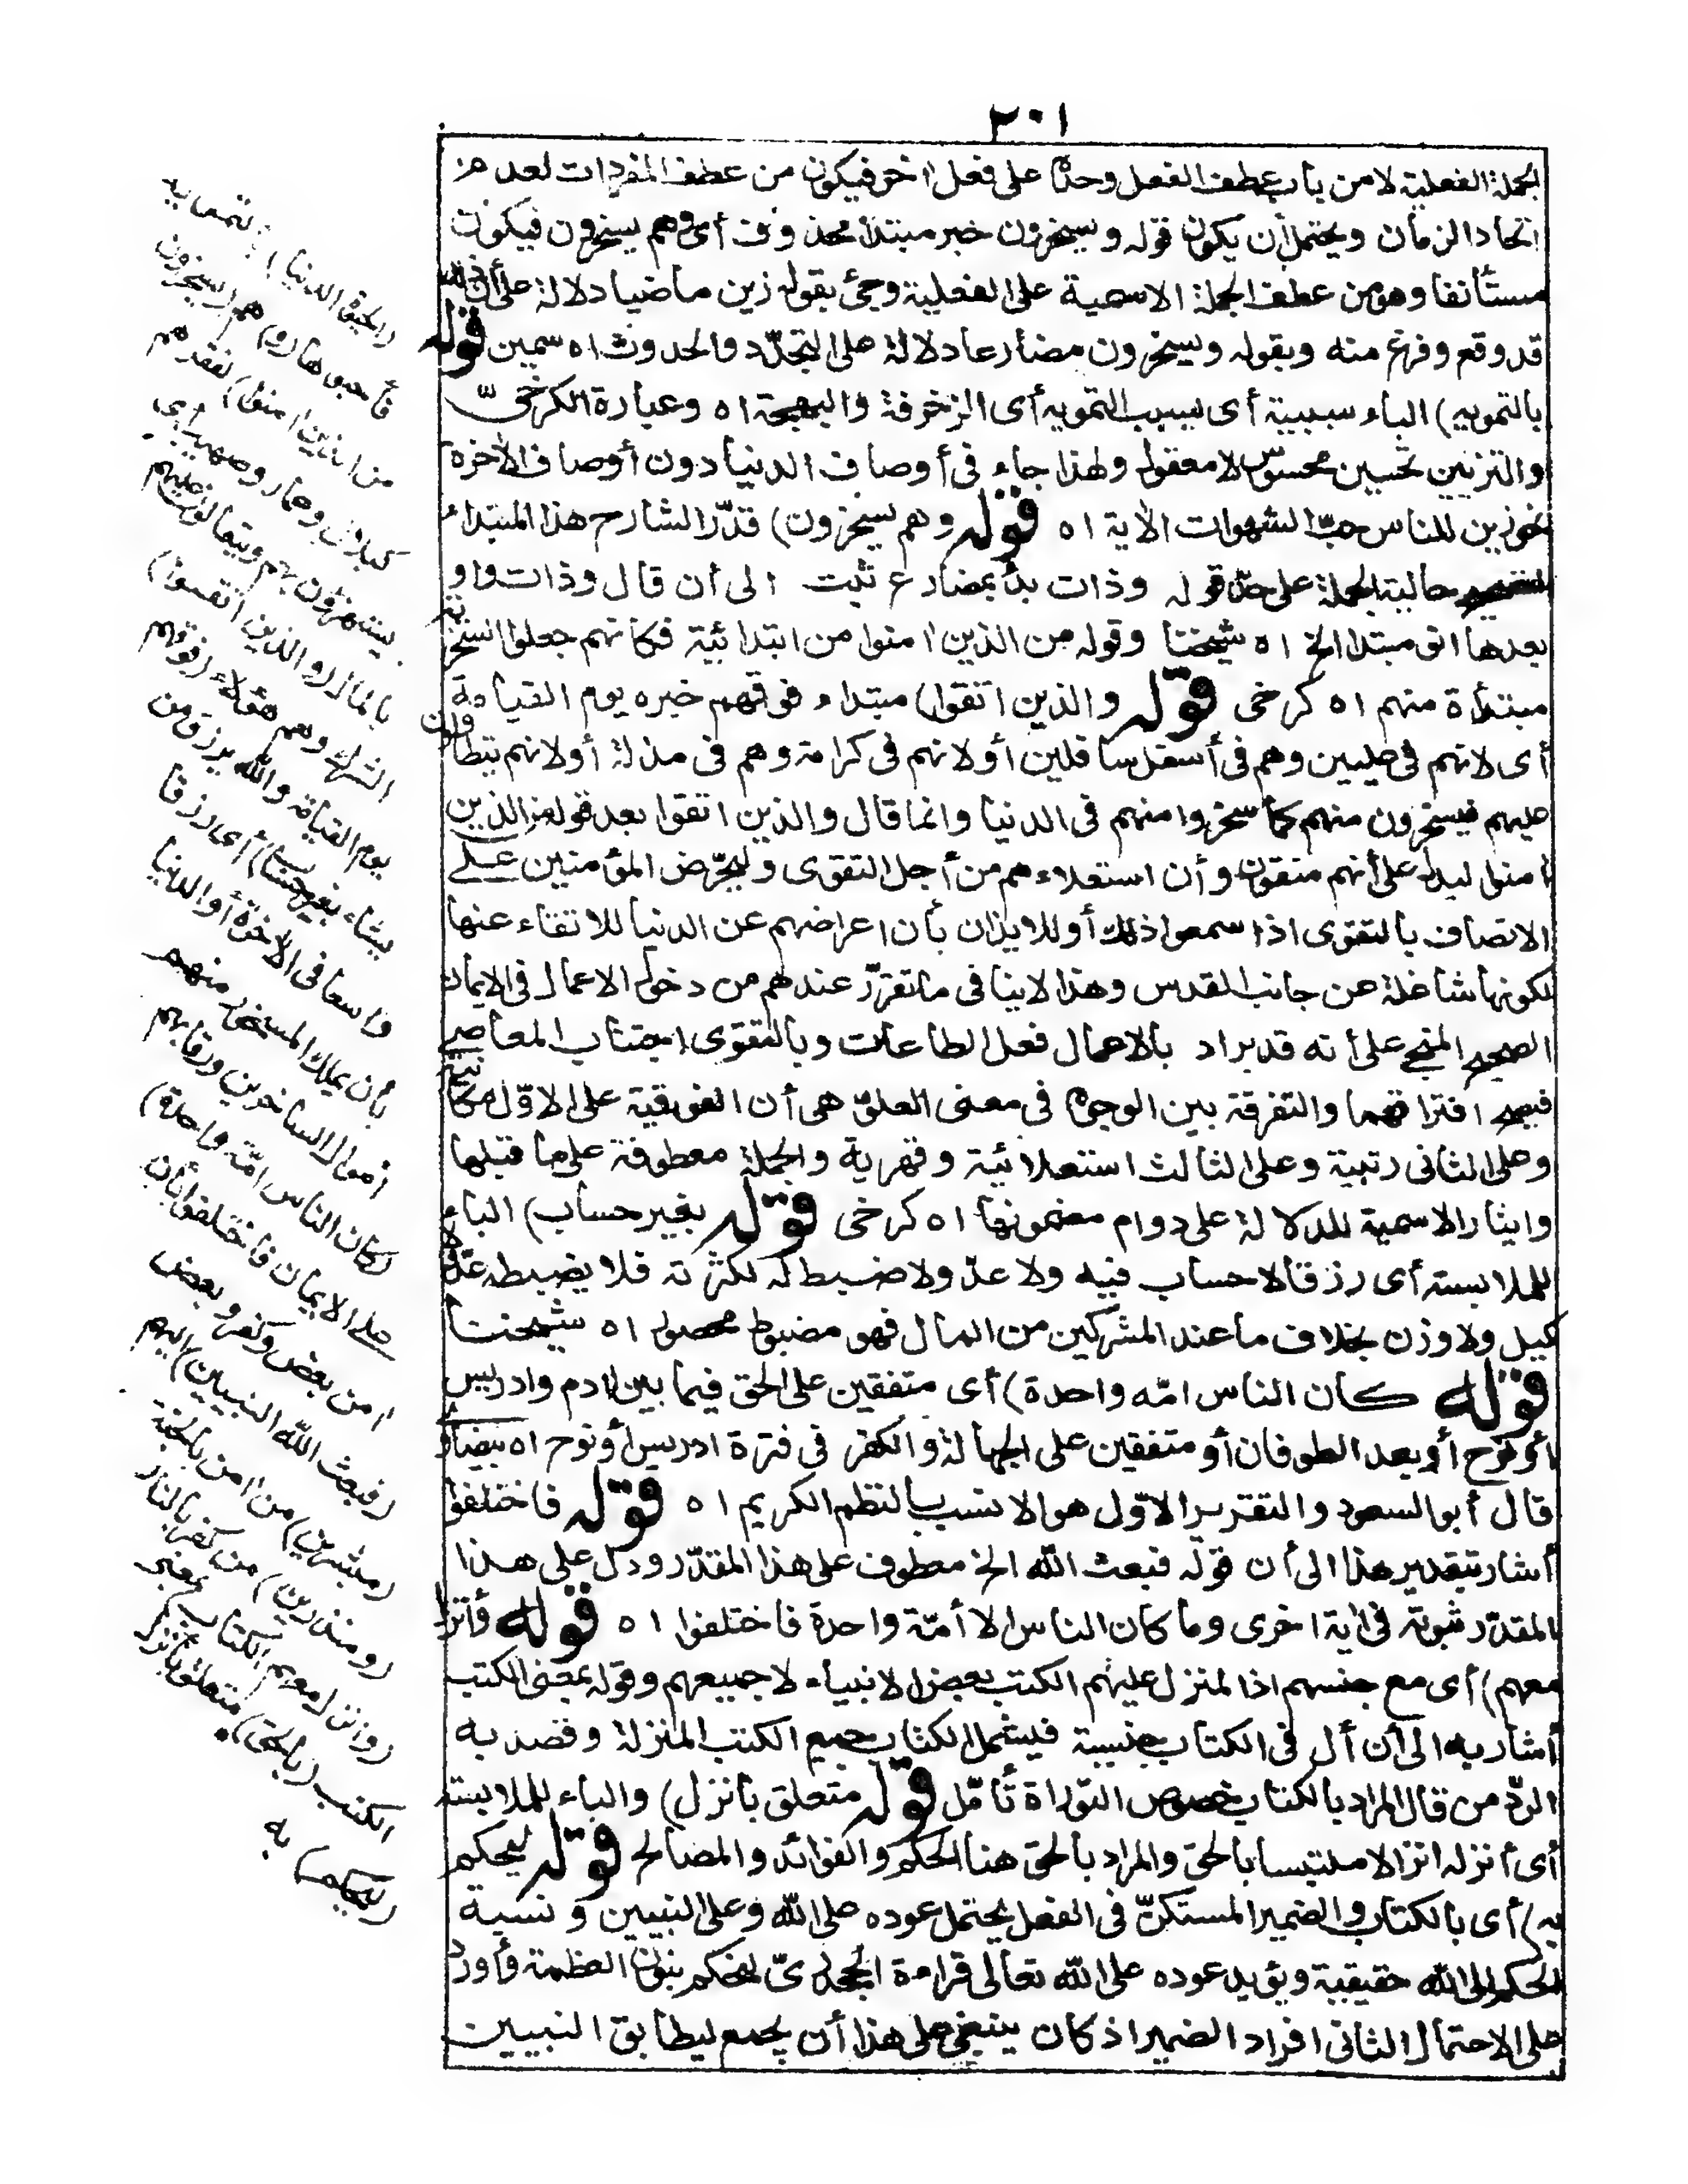 ٢٠١
الجملة الفعلية لا من باب عطف الفعل وحده على فعل اخر فيكون من عطف المفردات لعدم
اتحاد الزمان ويحتمل أن يكون قوله ويسخرون خبر مبتدأ محذوف أى وهم يسخرون فيكون
مستأنفا وهو من عطف الجملة الاسمية على الفعلية وجئ بقوله زين ماضيا دلالة على أن ذلك
قد وقع وفرغ منه وبقوله ويسخرون مضارعا دلالة على التجدّد والحدوث اه سمين قوله
بالتمويه) الباء سببية أى بسبب التمويه أى الزخرفة والبهجة اه وعبارة الكرخىّ
والتزيين تحسين محسوس لا معقول ولهذا جاء فى أوصاف الدنيا دون أوصاف الآخرة
نحو زين للناس حبّ الشهوات الآية اه قوله وهم يسخرون) قدّر الشارح هذا المبتدأ
حالية الجملة على حدّ قوله وذات بدأ بمضارع ثبت الى أن قال وذات واو
بعدها انو مبتدا الخ اه شيخنا وقوله من الذين امنوا من ابتدائية فكانهم جعلوا السخرية
مبتدأة منهم اه كرخى قوله والذين اتقوا) مبتداء فوقهم خبره يوم القيامة
أى لانهم فى عليين وهم فى أسفل سافلين أو لانهم فى كرامة وهم فى مذلة أو لانهم يتطاولون
عليهم فيسخرون منهم كما سخروا منهم فى الدنيا وانما قال والذين اتقوا بعد قوله من الذين
امنوا ليدل على أنهم متقون وأن استعلاءهم من أجل التقوى وليحرّض المؤمنين على
الاتصاف بالتقوى اذا سمعوا ذلك أو للايذان بأن اعراضهم عن الدنيا للاتقاء عنها
لكونها شاغلة عن جانب القدس وهذا لا ينافى ما تقرّر عندهم من دخول الاعمال فى الايمان
الصحيح المنجى على أنه قد يراد بالاعمال فعل الطاعات وبالتقوى اجتناب المعاصى
فيصح افتراقهما والتفرقة بين الوجوه فى معنى العلوّ هى أن الفوقية على الاوّل مكانية
وعلى الثانى رتبية وعلى الثالث استعلائية وقهرية والجملة معطوفة على ما قبلها
وايثار الاسمية للدلالة على دوام مضمونها اه كرخى قوله بغير حساب) الباء
للملابسة أى رزقا لا حساب فيه ولا عدّ ولا ضبط له لكثرته فلا يضبطه عدّ ولا
كيل ولا وزن بخلاف ما عند المشركين من المال فهو مضبوط محصول اه شيخنا
قوله كان الناس امّة واحدة) أى متفقين على الحق فيما بين ادم وادريس
أو نوح أو بعد الطوفان أو متفقين على الجهالة والكفر فى فترة ادريس أو نوح اه بيضاوى
قال أبو السعود والتقرير الاوّل هو الانسب بالنظم الكريم اه قوله فاختلفوا
أشار بتقدير هذا الى أن قوله فبعث الله الخ معطوف على هذا المقدّر ودل على هذا
المقدّر ثبوته فى اية اخرى وما كان الناس الا أمّة واحدة فاختلفوا اه قوله وأنزل
معهم) أى مع جنسهم اذ المنزل عليهم الكتب بعض الانبياء لا جميعهم وقوله بمعنى الكتب
أشار به الى أن أل فى الكتاب جنسية فيشمل الكتاب جميع الكتب المنزلة وقصد به
الردّ من قال المراد بالكتاب خصوص التوراة تأمّل قوله متعلق بأنزل) والباء للملابسة
أى أنزله انزالا ملتبسا بالحق والمراد بالحق هنا الحكم والفوائد والمصالح قوله ليحكم
به) أى بالكتاب والضمير المستكنّ فى الفعل يحتمل عوده على الله وعلى النبيين ونسبة
الحكم الى الله حقيقية ويؤيد عوده على الله تعالى قراءة الجحدرىّ لنحكم بنون العظمة وأورد
على الاحتمال الثانى افراد الضمير اذ كان ينبغى على هذا أن يجمع ليطابق النبيين
(الحيوة الدنيا) بالتمويه
فأحبوها (و) هم (يسخرون
من الذين امنوا) لفقرهم
كبلال وعمار وصهيب أى
يستهزؤن بهم ويتعالون عليهم
بالمال (والذين اتقوا)
الشرك وهم هؤلاء (فوقهم
يوم القيامة والله يرزق من
يشاء بغير حساب) أى رزقا
واسعا فى الاخرة أو الدنيا
بأن يملك المسخور منهم
أموال الساخرين ورقابهم
(كان الناس امّة واحدة)
على الايمان فاختلفوا بأن
امن بعض وكفر بعض
(فبعث الله النبيين) اليهم
(مبشرين) من امن بالجنة
(ومنذرين) من كفر بالنار
(وأنزل معهم الكتاب) بمعنى
الكتب (بالحق) متعلق بأنزل
(ليحكم) به